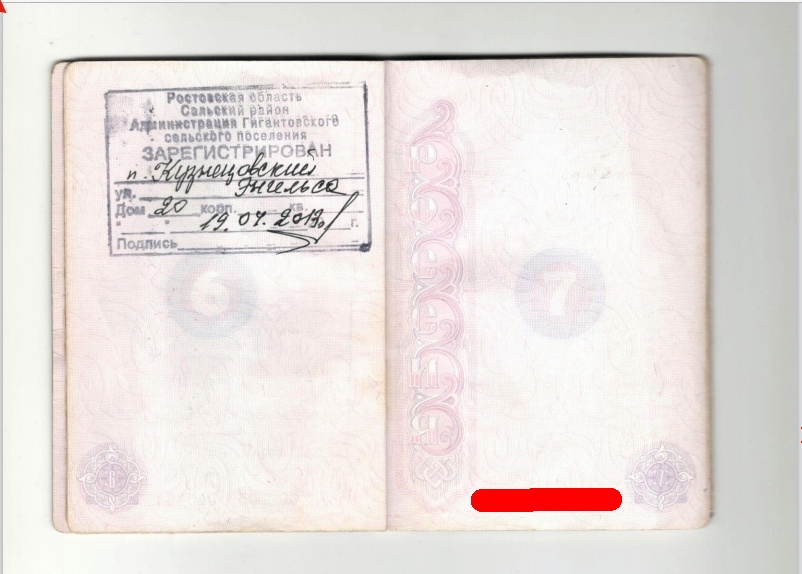 Ростовская область
Сальский район
Администрация Гигантовского
сельского поселения
ЗАРЕГИСТРИРОВАН
п. Кузнецовский
ул. Энгельса
Дом 20 корп. кв.
19.07.2013г. г.
Подпись
6
7
6
7